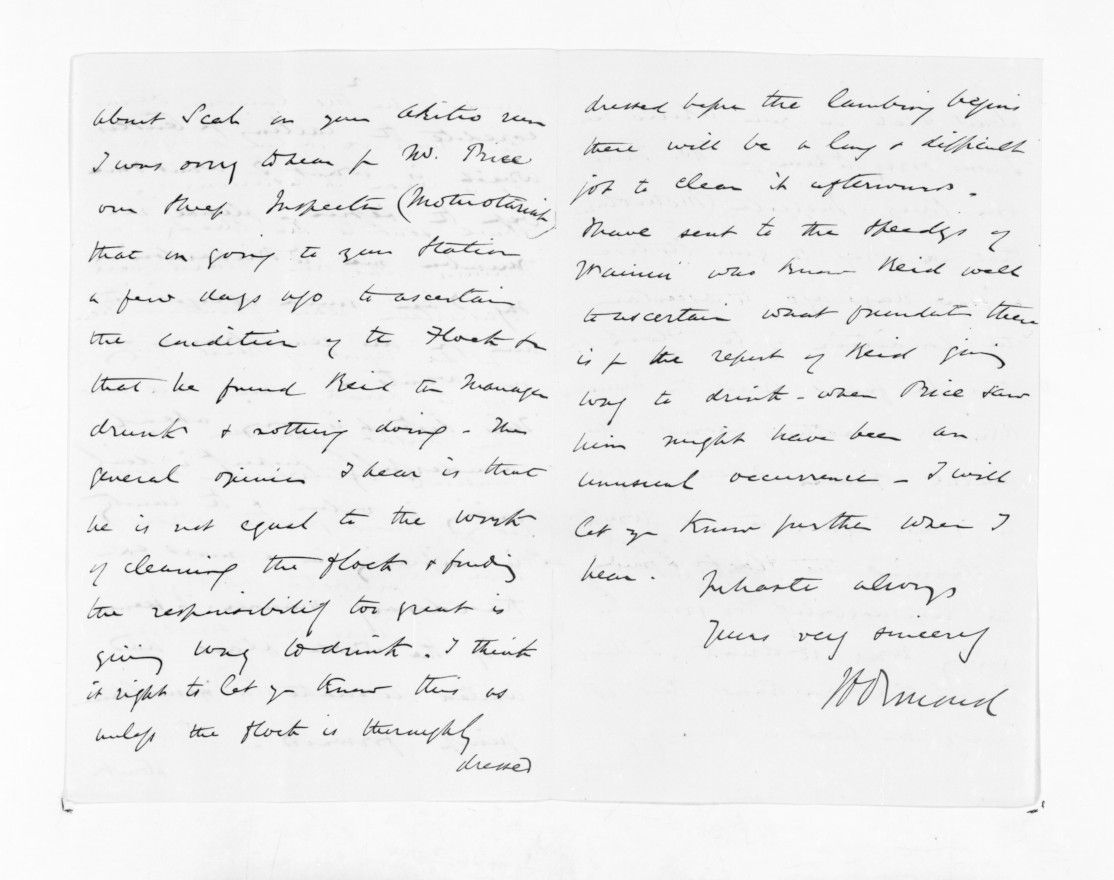 about Scab on your Akitio run
I was sorry to hear fr Mr. Price
our Sheep Inspector (Motuotaria)
that on going to your Station
a few days ago to ascertain
the condition of the Flock &c
that he found Reid the Manager
drunk & nothing doing - The
general opinion I hear is that
he is not equal to the work
of cleaning the flock & finding
the responsibility too great is
giving way to drink. I think
it right to let yo know this as
unless the flock is thoroughly
dressed
dressed before the lambing begins
there will be a long & difficult
job to clean it afterwards -
I have sent to the Speedys of
Wainui who know Reid well
to ascertain what foundatn there
is fr the report of Reid giving
way to drink - when Price saw
him might have been an
unusual occurrence - I will
let yo know further when I
hear.
In haste always
Yours very sincerely
JD Ormond